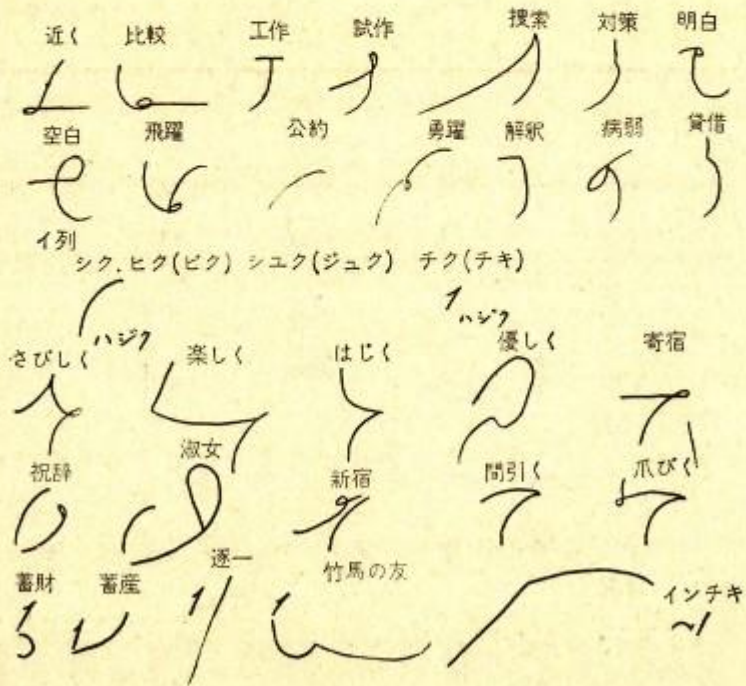 近く 比較 工作 試作 捜索 対策 明白
空白 飛躍 公約 勇躍 解釈 病弱 貸借
イ列
シク.ヒク(ビク) シユク(ジュク) チク(チキ)
ハジク ハジク
さびしく 楽しく はじく 優しく 寄宿
祝辞 淑女 新宿 間引く 爪びく
蓄財 蓄産 逐一 竹馬の友 インチキ